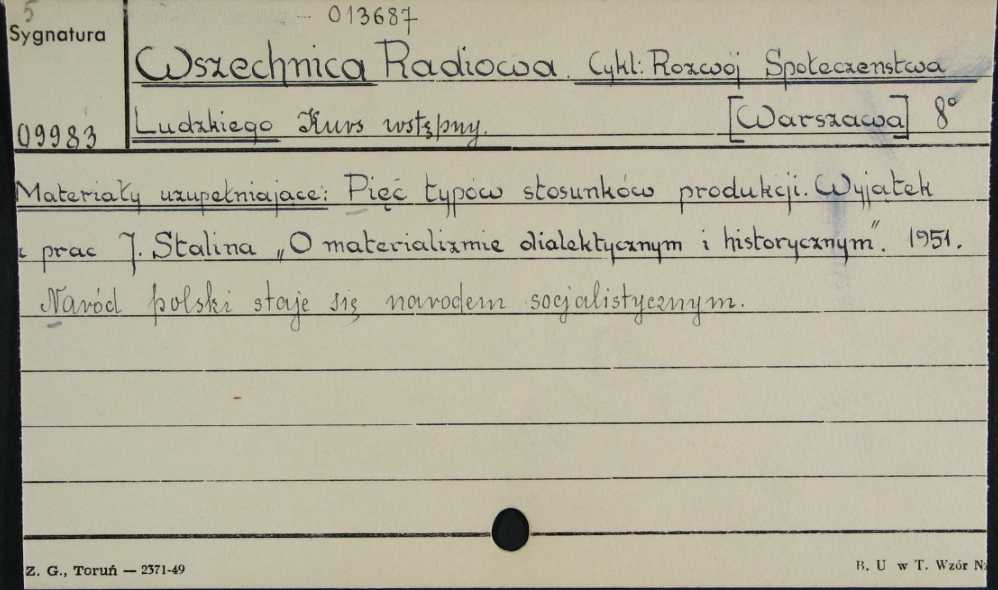 5
013687
Sygnatura
Wszechnica Radiowa. Cykl: Rozwój Społeczeństwa
09983
Ludzkiego Kurs wstępny. [Warszawa] 8°
Materiały uzupełniające: Pięć typów stosunków produkcji. Wyjątek
z prac J. Stalina „O materializmie dialektycznym i historycznym". 1951.
Naród polski staje się narodem socjalistycznym.
Z. G., Toruń — 2371-49
B. U w T. Wzór